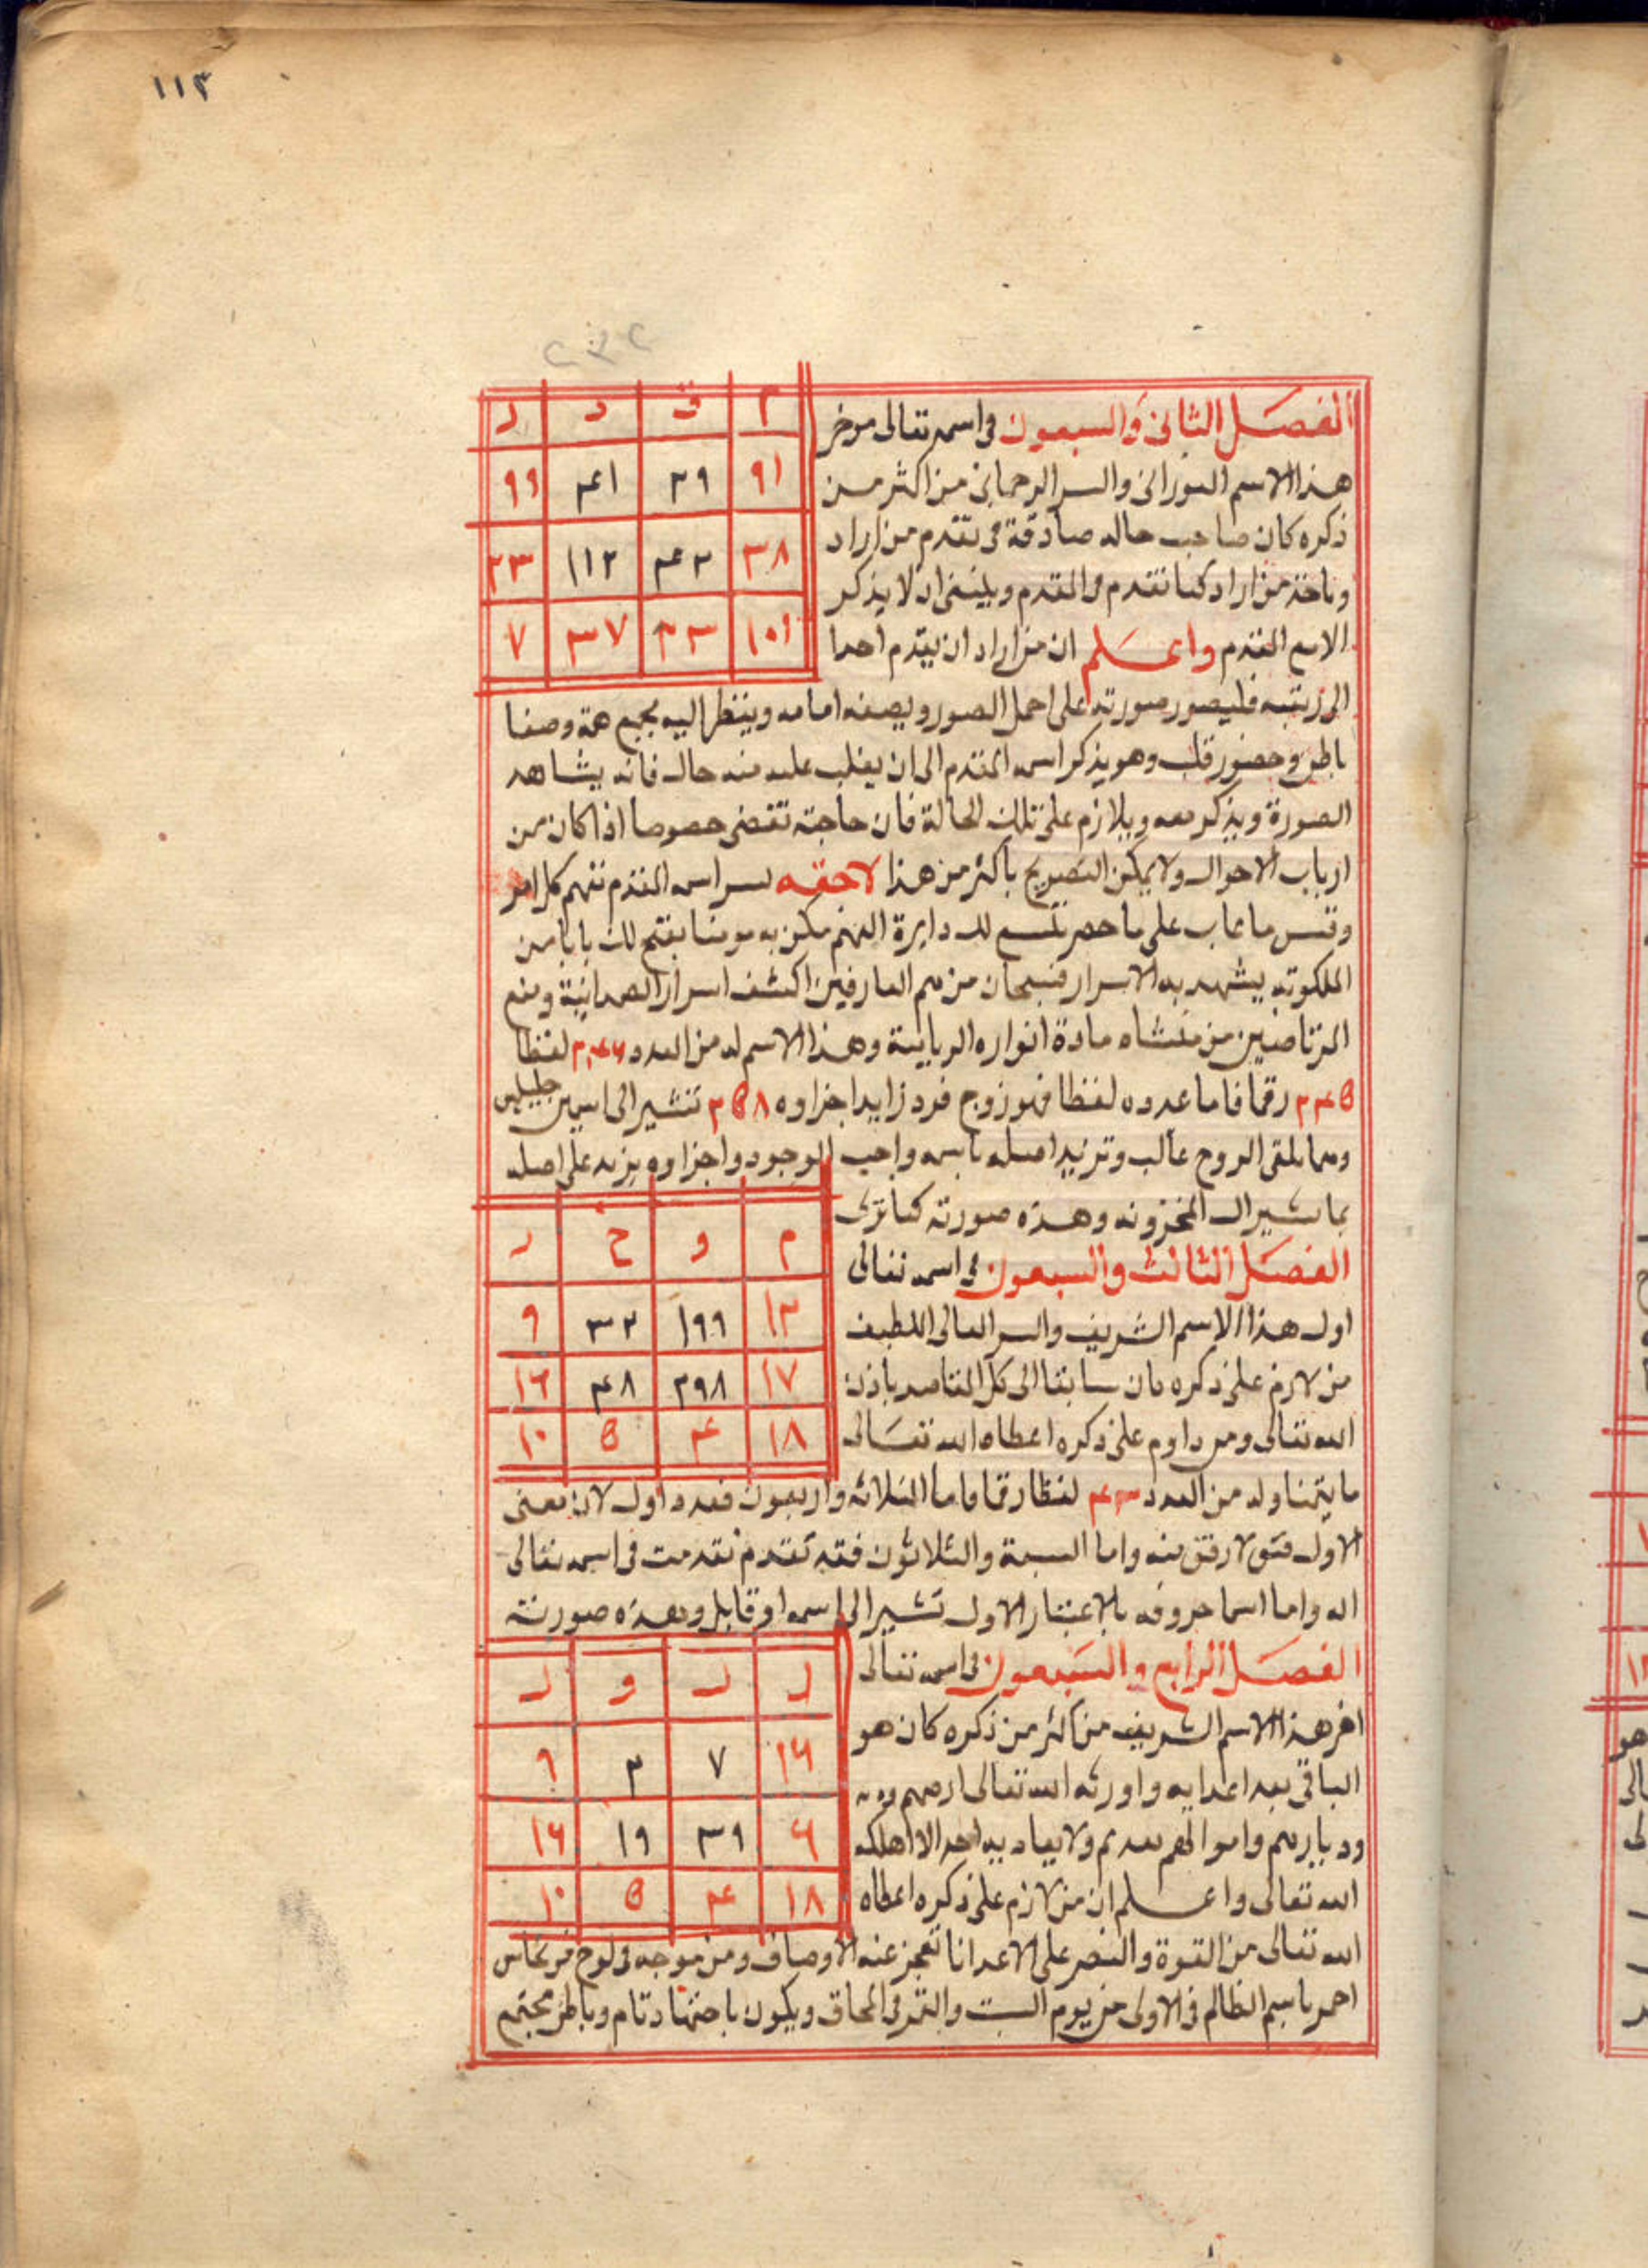 ١١٣
م ق د ر
٩١ ٣٩ ٤١ ٩٩
٣٨ ٤٢ ١١٢ ٢٣
١٠١ ٣٣ ٣٧ ٧
الفصل الثانى والسبعون فى اسمه تعالى موخر
هذا الاسم النورانى والسر الرحمانى من اكثر من
ذكره كان صاحب حاله صادقة فى تقدم من اراد
وتاخذ من اراد كما تقدم فى المقدم وينبغى ان لا يذكر
الاسم المقدم واعلم ان من اراد ان يقدم احدا
الى رتبته فليصور صورته على اجمل الصور ويصفه امامه وينظر اليه بجميع همة وصفا
باطن وحضور قلب وهو يذكر اسمه المقدم الى ان يغلب عليه منه حال فانه يشاهد
الصورة ويذكر معه ويلازم على تلك الحالة فان حاجته تقضى خصوصا اذا كان من
ارباب الاحوال ولا يمكن التصريح باكثر من هذا لاحقه سر اسمه المقدم تفهم كل امر
وقس ما غاب على ما حضر تتسع لك دايرة الفهم مكن به مومنا يفتح لك بابا من
الملكوته يشهد به الاسرار فسبحان من العارفين اكشف اسرار الصمدانية ومنع
من منشاه مادة انواره الربانية وهذا الاسم له من العدد لفظا
رقما فاما عدده لفظا فهو زوج فرد زايد اجزاوه تشير الى اسمين جليلين
وهما ملقى الروح غالب وتزيد اصله باسمه واجب الوجود واجزاوه يزيد على اصله
بما يشير الى المخزونه وهذه صورته كما ترى
م و خ ر
١٣ ١٩٩ ٣٢ ٩
١٧ ٣٩٨ ٤٨ ١٦
١٨ ٤ ٥ ١٠
الفصل الثالث والسبعون فى اسمه تعالى
اول هذا الاسم الشريف والسر العالى اللطيف
من لازم على ذكره كان سابقا الى كل المقاصد باذن
الله تعالى ومن داوم على ذكره اعطاه الله تعالى
ما يتمنا وله من العدد لفظا رقما واما الثلاثه واربعون فعدد اول لان معنى
الاول فتق لا رفق منه واما السبعة والثلاثون فقد تقدم تقدمت فى اسمه تعالى
اله واما اسما حروفه بالاعتبار الاول تشير الى اسمه او قابل وهذه صورته
الفصل الرابع والسبعون فى اسمه تعالى
١٦ ٧ ٣ ٦
٦ ٣٩ ١٩ ١٦
١٨ ٤ ٥ ١٠
اخر هذا الاسم الشريف من اكثر من ذكره كان هو
الباقى بعد اعدايه واورثه الله تعالى ارضهم
وديارهم واموالهم بعدهم ولا يعاديه احد الا اهلكه
الله تعالى واعلم ان من لازم على ذكره اعطاه
الله تعالى من القوة والنصر على الاعدا ما تعجز عنه الاوصاف ومن موجه فى لوح من نحاس
احمر باسم الظالم فى الاولى من يوم السبت والقمر فى المحاق ويكون باجتهاد تام وباطن مجتمع